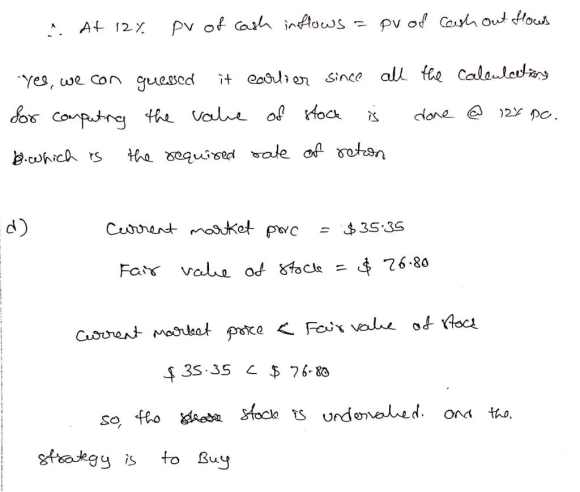 ∴ At 12% PV of Cash inflows = PV of Cash out flows
Yes, we can guessed it earlier since all the Calculations
for computing the value of stock is done @ 12% pc.
which is the required rate of return
d) Current market price = $35.35
Fair value of stock = $ 76.80
Current market price < Fair value of stock
$ 35.35 < $ 76.80
so, the stock is undervalued. and the.
strategy is to Buy